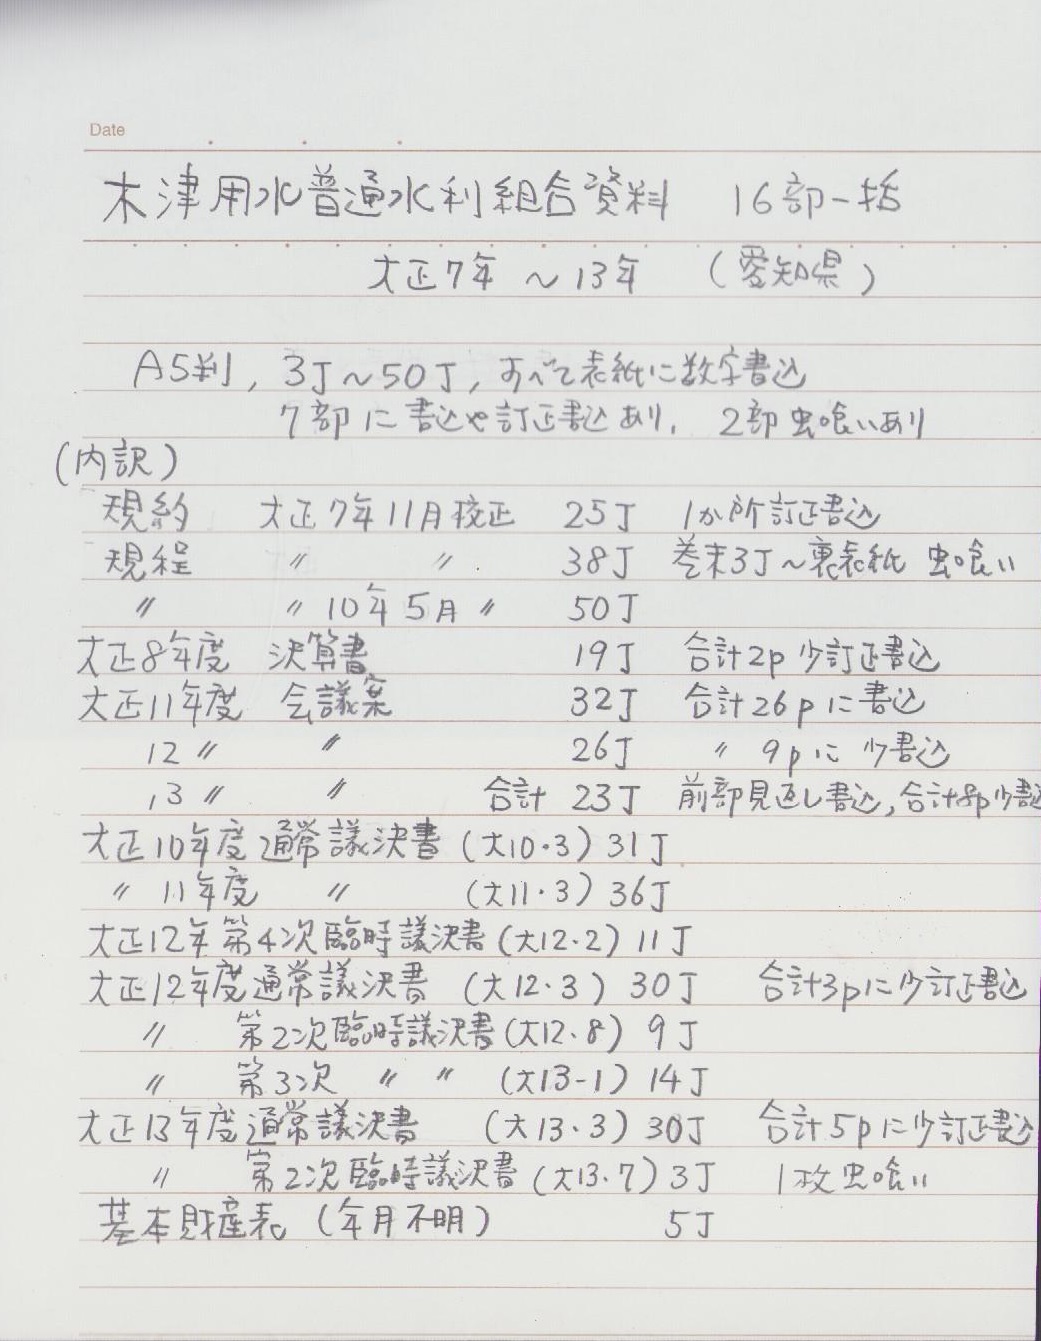 Date
木津用水普通水利組合資料 16部一括
大正7年 〜13年 (愛知県)
A5判, 3丁〜50丁, すべて表紙に数字書込
7部に書込や訂正書込あり, 2部虫喰いあり
(内訳)
規約 大正7年11月校正 25丁 1か所訂正書込
規程 〃 〃 38丁 巻末3丁〜裏表紙 虫喰い
〃 〃10年5月〃 50丁
大正8年度 決算書 19丁 合計2p少訂正書込
大正11年度 会議案 32丁 合計26pに書込
12〃 〃 26丁 〃 9pに少書込
13〃 〃 合計 23丁 前部見返し書込,合計8p少書込
大正10年度通常議決書 (大10・3) 31丁
〃 11年度 〃 (大11・3) 36丁
大正12年第4次臨時議決書 (大12・2) 11丁
大正12年度通常議決書 (大12・3) 30丁 合計3pに少訂正書込
〃 第2次臨時議決書 (大12・8) 9丁
〃 第3次 〃 〃 (大13-1) 14丁
大正13年度通常議決書 (大13・3) 30丁 合計5pに少訂正書込
〃 第2次臨時議決書 (大13・7) 3丁 1枚虫喰い
基本財産表 (年月不明) 5丁